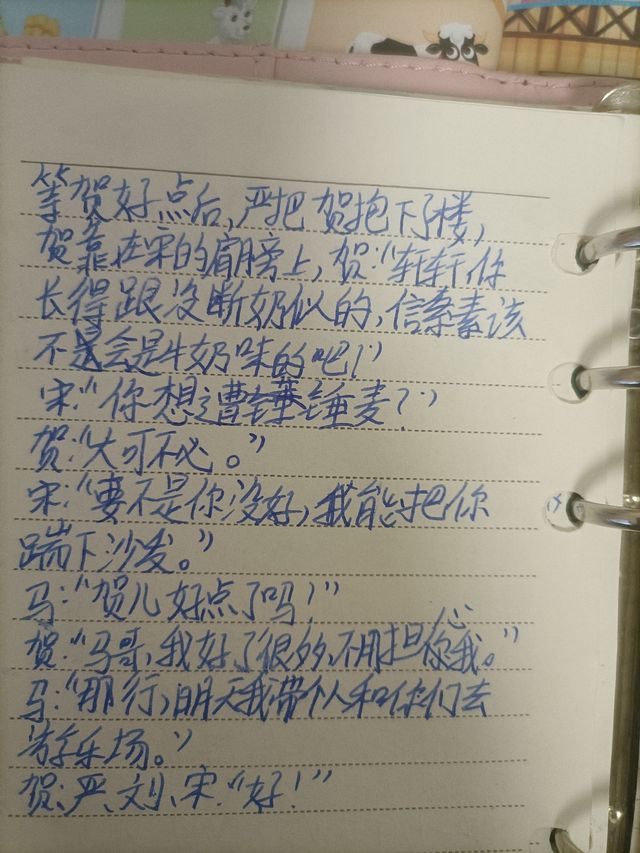 等贺好点后,严把贺抱下了楼,
贺靠在宋的肩膀上,贺:“轩轩,你
长得跟没断奶似的,信素素该
不是会是牛奶味的吧!”
宋:“你想遭锤锤麦?”
贺:“大可不必。”
宋:“要不是你没好,我能把你
踹下沙发。”
马:“贺儿好点了吗!”
贺:“马哥,我好了很多,不用担心你我。”
马:“那行,明天我带个人和你们去
游乐场。”
贺、严、刘、宋:“好!”